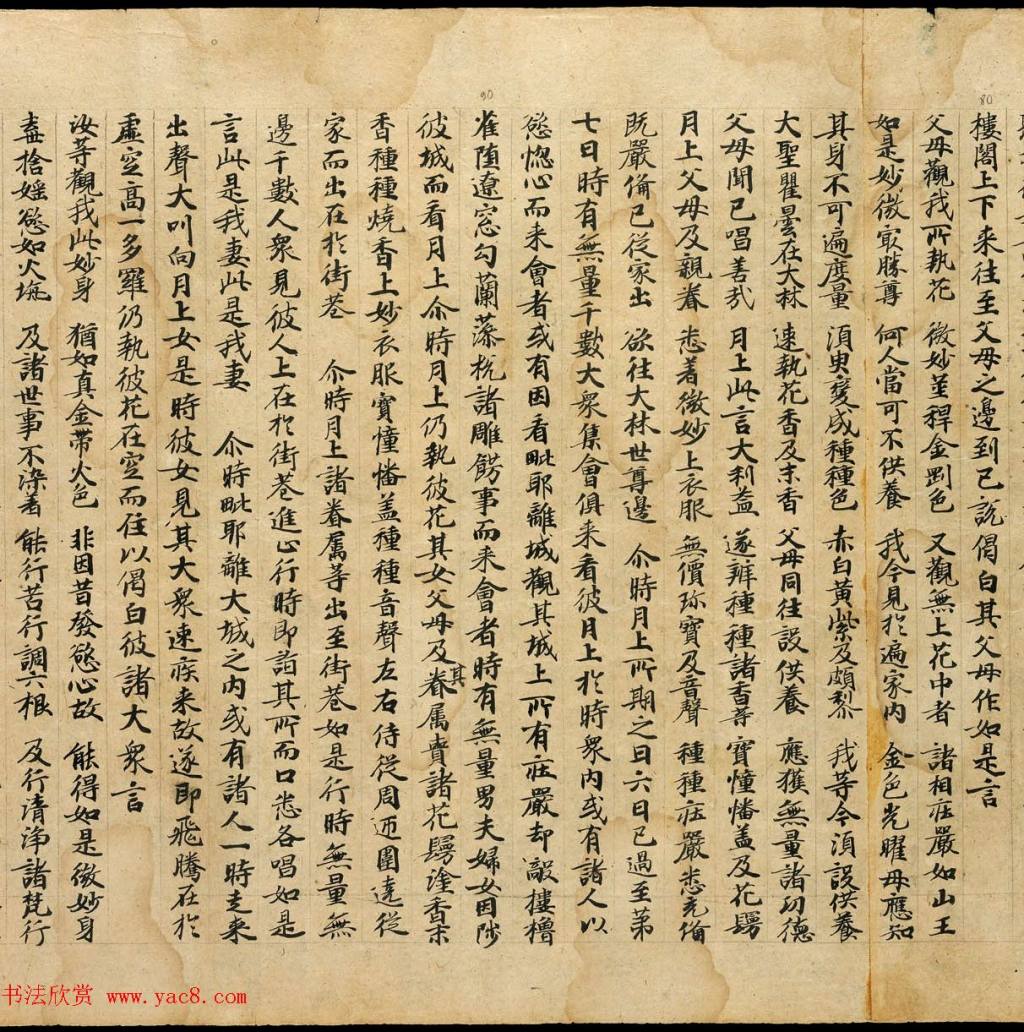 80
90
樓閣上下来往至父母之邊到已說偈白其父母作如是言
父母觀我所執花 微妙莖稈金剛色 又觀無上花中者 諸相庄嚴如山王
如是妙微寂勝尊 何人當可不供養 我今見扵遍家內 金色光曜母應知
其身不可遍度量 須臾變成種種色 赤白黃紫及頗梨 我等今須設供養
大聖瞿曇在大林 速執花香及末香 父母同往設供養 應獲無量諸功德
父母聞已唱善哉 月上此言大利益 遂辦種種諸香等 寶憧憣盖及花鬘
月上父母及親眷 悉着微妙上衣服 無價珎寶及音聲 種種庄嚴悉充俻
既嚴俻已從家出 欲往大林世尊邊 尒時月上所期之日六日已過至第
七日時有無量千數大衆集會俱来看彼月上扵時衆內或有諸人以
慾惚心而来會者或有因看毗耶離城觀其城上所有庄嚴却敵樓櫓
雀隋遼窓勾蘭藻棁諸雕餝事而来會者時有無量男夫婦女因陟
彼城而看月上尒時月上仍執彼花其女父母及其眷属賣諸花鬘塗香末
香種種燒香上妙衣服寶憧憣盖種種音聲左右侍從周迊圍遶從
家而出在扵街巷 尒時月上諸眷属等出至街巷如是行時無量無
邊千數人衆見彼人上在扵街巷進止行時即詣其所而口悉各唱如是
言此是我妻此是我妻 尒時毗耶離大城之內或有諸人一時走来
出聲大叫向月上女是時彼女見其大衆速疾来故遂即飛騰在扵
虛空高一多羅仍執彼花在空而住以偈白彼諸大衆言
汝等觀我此妙身 猶如真金帶火色 非因昔發慾心故 能得如是微妙身
棄捨婬慾如火坑 及諸世事不染著 能行苦行調六根 及行清淨諸梵行
书法欣赏 www.yac8.com